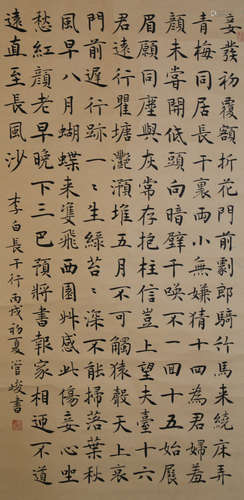 妾發初覆額折花門前劇郎騎竹馬來繞床弄
青梅同居長干裏兩小無嫌猜十四為君婦羞
顏未嘗開低頭向暗壁千喚不一回十五始展
眉願同塵與灰常存抱柱信豈上望夫臺十六
君遠行瞿塘灩澦堆五月不可觸猿聲天上哀
門前遲行跡一〻生綠苔〻深不能掃落葉秋
風早八月蝴蝶來雙飛西園草感此傷妾心坐
愁紅顏老早晚下三巴預將書報家相迎不道
遠直至長風沙
李白長干行丙戌初夏管峻書